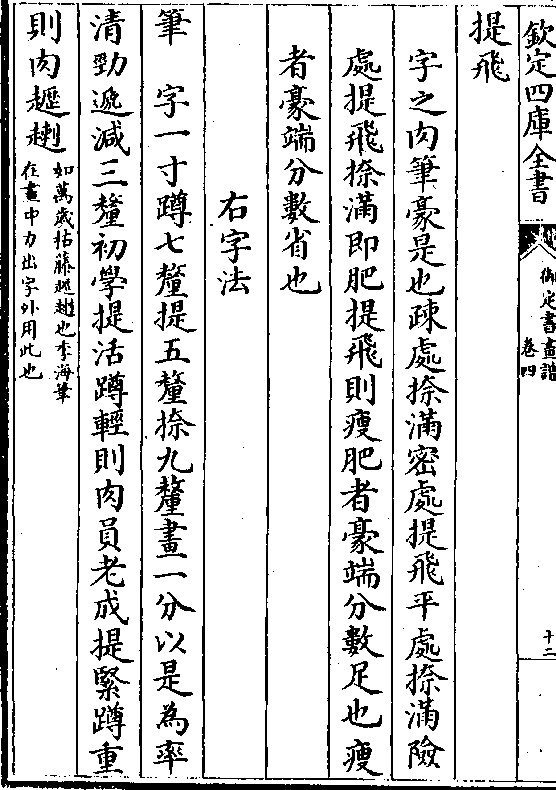 欽定四庫全書
御定書畫譜
卷四
十二
提飛
字之肉筆豪是也疎處捺滿密處提飛平處捺滿險
處提飛捺滿即肥提飛則瘦肥者豪端分數足也瘦
者豪端分數省也
右字法
筆 字一寸蹲七釐提五釐捺九釐畫一分以是為率
清勁遞減三釐初學提活蹲輕則肉員老成提緊蹲重
則肉
如萬歲枯藤也李海筆
在畫中力出字外用此也